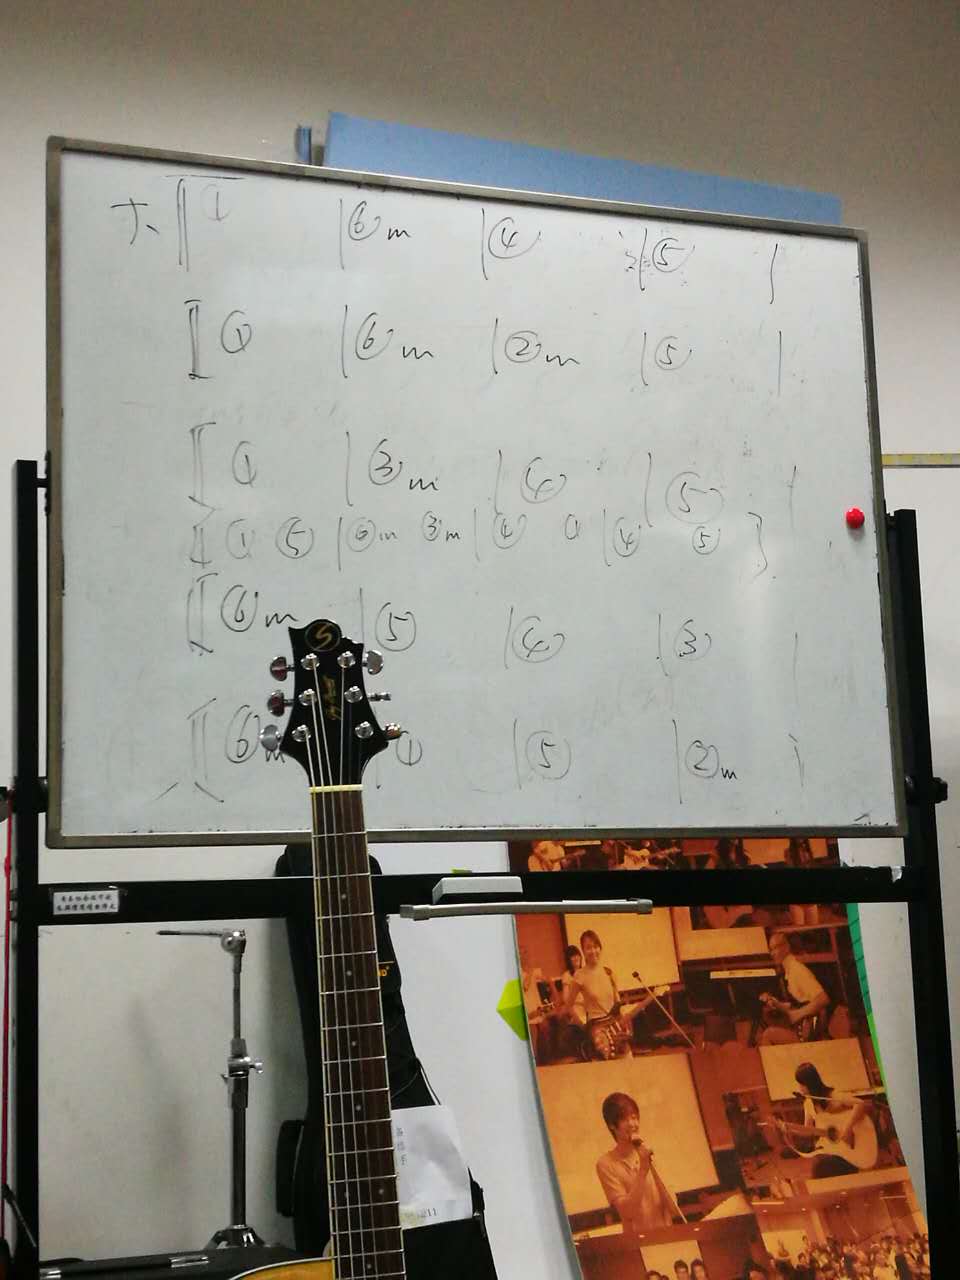 大 ‖ ① | ⑥m | ④ | ⑤ |
‖ ① | ⑥m | ②m | ⑤ |
‖ ① | ③m | ④ | ⑤ |
‖ ① ⑤ | ⑥m ③m | ④ ① | ④ ⑤ }
‖ ⑥m | ⑤ | ④ | ③ |
小 ‖ ⑥m | ① | ⑤ | ②m |
S